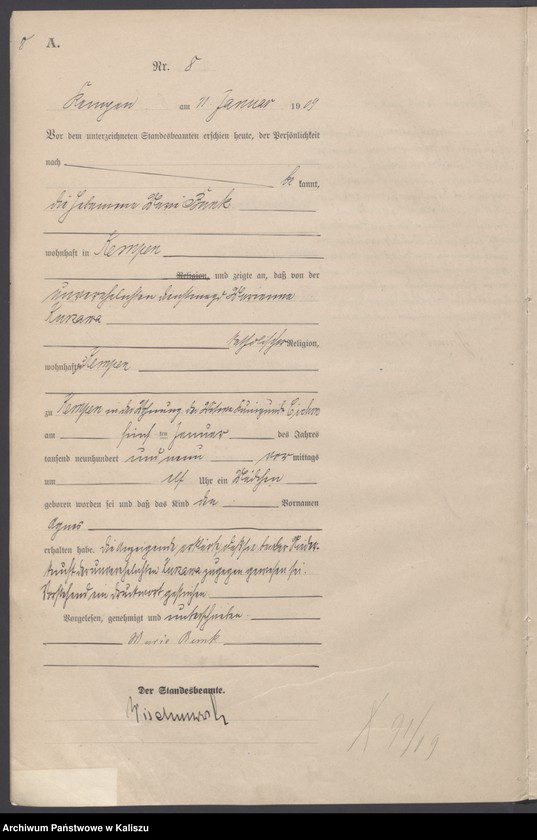 8
A.
Nr. 8
Kempen am 11 Januar 1909
Vor dem unterzeichneten Standesbeamten erschien heute, der Persönlichkeit
nach
be kannt,
die Hebamme Marie
wohnhaft in Kempen
Religion, und zeigte an, daß von der
unverehelichten Dienstmagd Marianna
Kukawa
katholischer Religion,
wohnhaft Kempen
zu Kempen in der Wohnung der Witwe Kunigunde
am fünften Januar des Jahres
tausend neunhundert und neun vor mittags
um elf Uhr ein Mädchen
geboren worden sei und daß das Kind den Vornamen
Agnes
erhalten habe. Die Anzeigende erklärte, daß sie bei der Nieder-
kunft der unverehelichten Kukawa zugegen gewesen sei.
Vorstehend ein Druckwort gestrichen
Vorgelesen, genehmigt und unterschrieben
Marie
Der Standesbeamte.
Archiwum Państwowe w Kaliszu